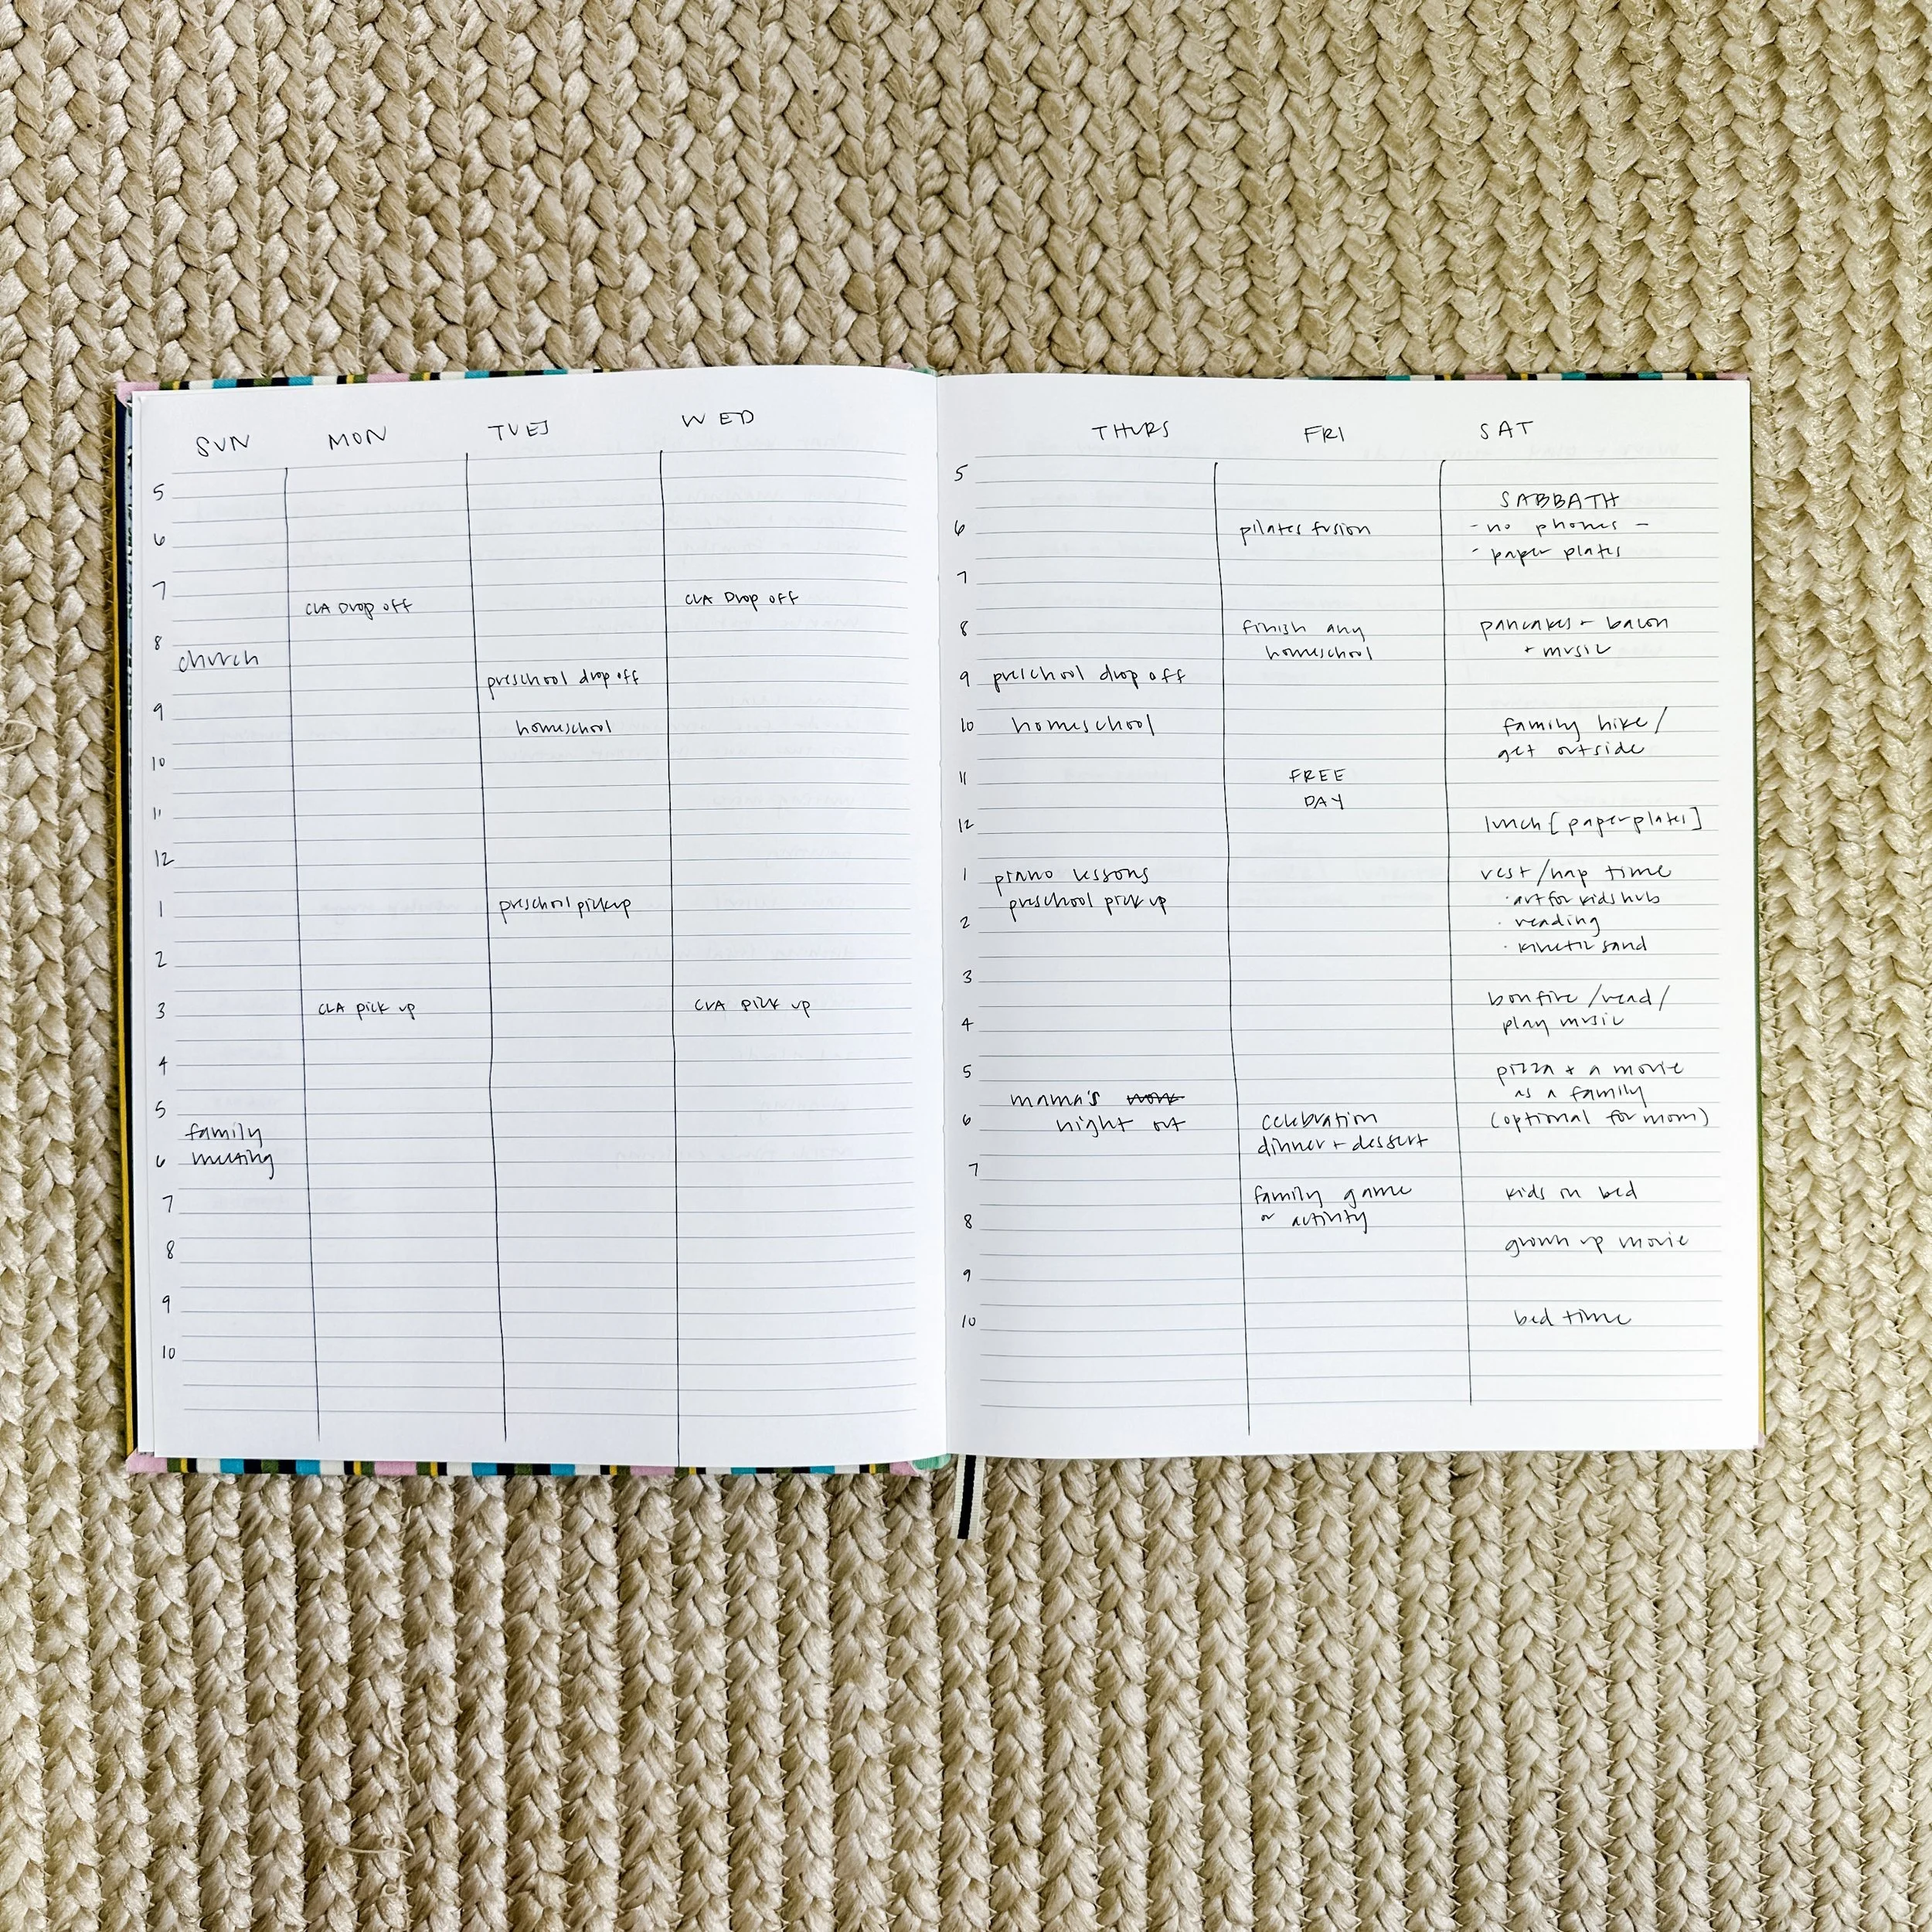 SUN MON TUES WED
5
6
7
CLA Drop off CLA Drop off
8
church
preschool drop off
9
homeschool
10
11
12
1 preschool pickup
2
3 CLA pick up CLA pick up
4
5
family
6 meeting
7
8
9
10
THURS FRI SAT
5
SABBATH
6 pilates fusion - no phones -
- paper plates
7
8 finish any pancakes + bacon
homeschool + music
9 preschool drop off
10 homeschool family hike /
get outside
11 FREE
DAY
12 lunch [paper plates]
1 piano lessons rest/nap time
preschool pick up · art for kids hub
2 · reading
· kinetic sand
3
bonfire / read /
4 play music
5 pizza + a movie
mama's work as a family
6 night out celebration (optional for mom)
dinner + dessert
7
family game kids in bed
8 or activity
grown up movie
9
10 bed time